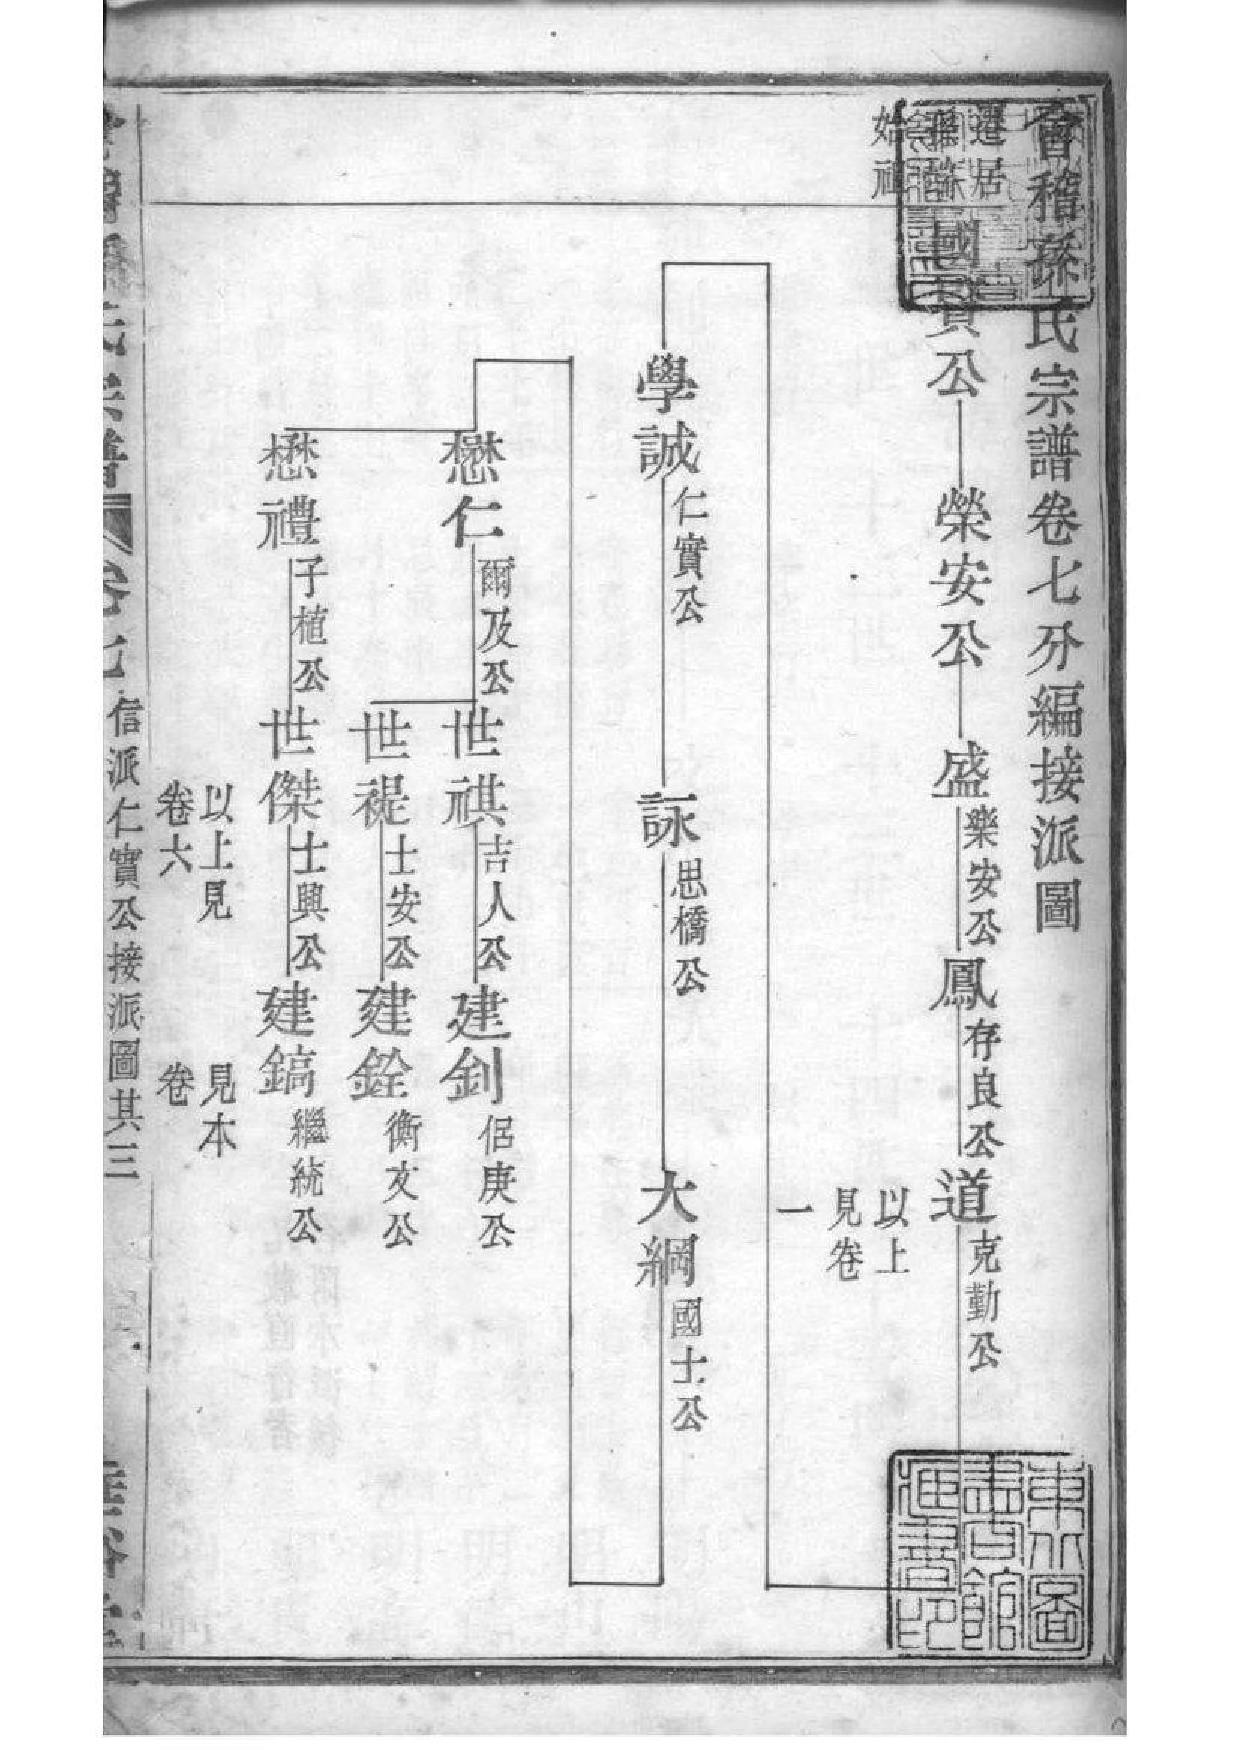 會稽孫氏宗譜卷七分編接派圖
遷居
始祖
國賓公
榮安公
盛樂安公
鳳存良公
道克勤公
以上
見卷
一
學誠仁實公
詠思橋公
大綱國士公
懋仁爾及公
世祺吉人公
建釗侶庚公
世禔士安公
建銓衡文公
懋禮子植公
世傑士興公
建鎬繼統公
以上見
卷六
見本
卷
孫氏宗譜
卷七
信派仁實公接派圖其三
東北圖
書館
書印